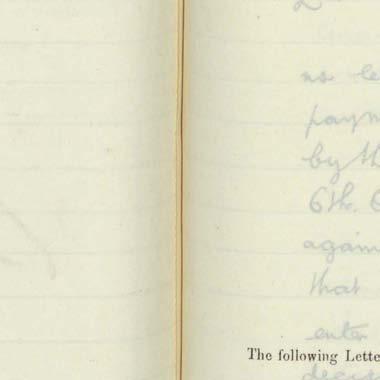 no le
paym
by th
6th. 
again
that
enter
The following Lette
decis